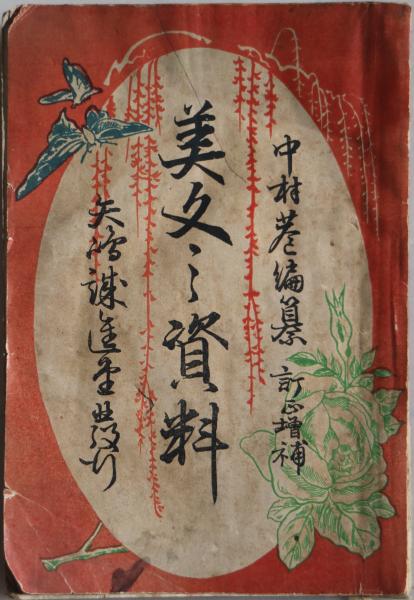 中村巷編纂 訂正增補
美文之資料
矢嶋誠進堂發行